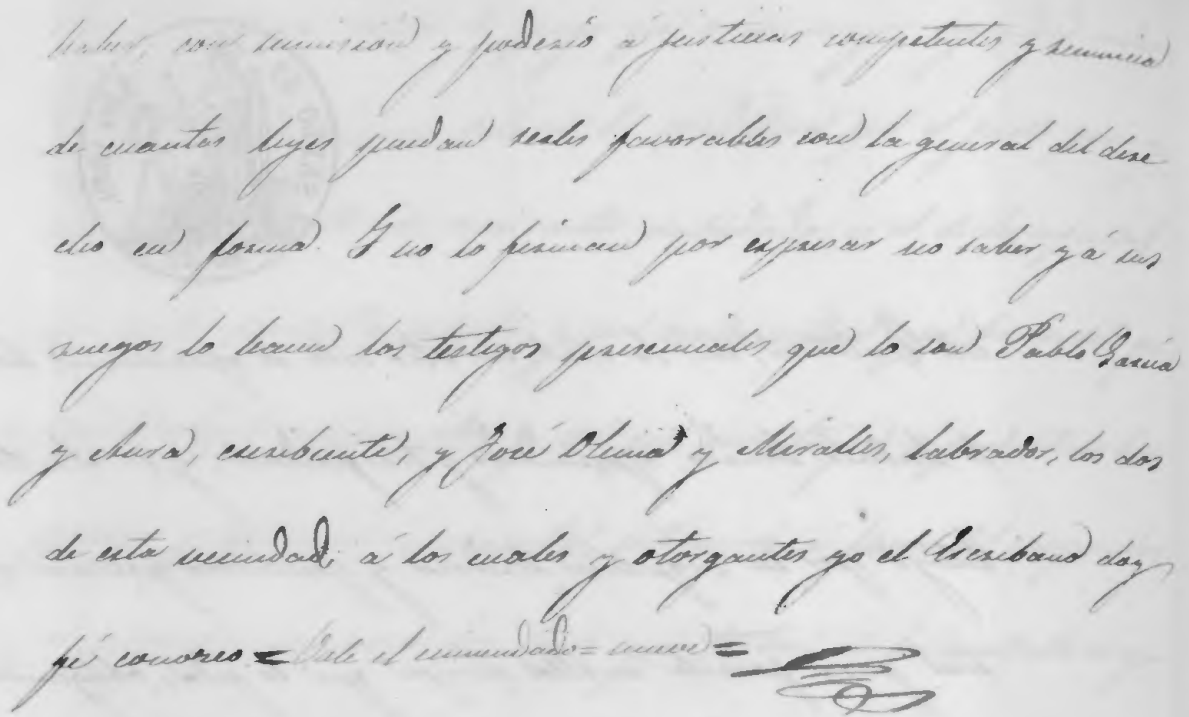 haber, con sumision y poderío á justicias competentes y renuncia
de cuantas leyes puedan serles favorables con la general del dere
cho en forma. Y no lo firman por espresar no saber y á sus
ruegos lo hacen los testigos presenciales que lo son Pablo Garcia
y Aura, escribiente, y José Olcina y Miralles, labrador, los dos
de esta vecindad, á los cuales y otorgantes yo el Escribano doy
fé conozco = Vale el enmendado = =